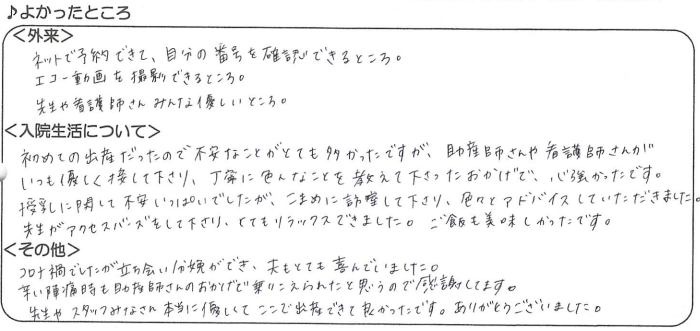 ♪よかったところ
＜外来＞
ネットで予約できて、自分の番号を確認できるところ。
エコー動画を撮影できるところ。
先生や看護師さんみんな優しいところ。
＜入院生活について＞
初めての出産だったので不安なことがとても多かったですが、助産師さんや看護師さんが
いつも優しく接して下さり、丁寧に色んなことを教えて下さったおかげで、心強かったです。
授乳に関して不安いっぱいでしたが、こまめに訪室して下さり、色々とアドバイスしていただきました。
先生がアクセスバーズをして下さり、とてもリラックスできました。ご飯も美味しかったです。
＜その他＞
コロナ禍でしたが立ち会い分娩ができ、夫もとても喜んでいました。
辛い陣痛時も助産師さんのおかげで乗りこえられたと思うので感謝してます。
先生やスタッフみなさん本当に優しくてここで出産できて良かったです。ありがとうございました。